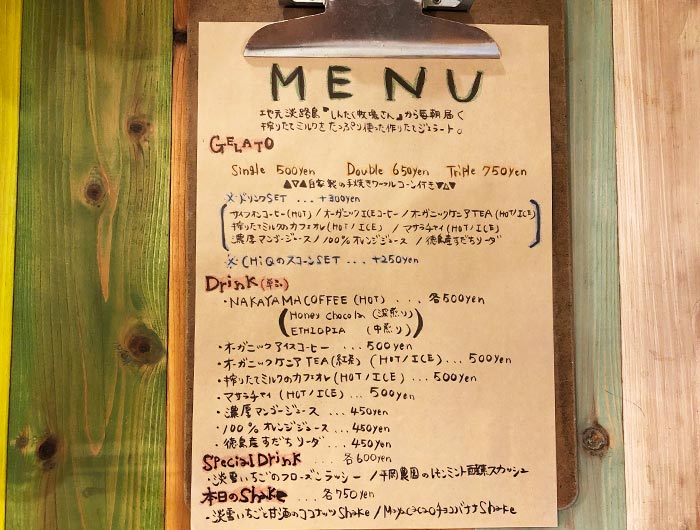 MENU
地元淡路島『しんたく牧場さん』から毎朝届く
搾りたてミルクをたっぷり使った作りたてジェラート。
GELATO
Single 500yen Double 650yen Triple 750yen
▲▽▲自家製の手焼きワッフルコーン付き▼△▼
※ドリンクSET ... +300yen
サイフォンコーヒー(HOT) / オーガニックICEコーヒー / オーガニックケニアTEA (HOT/ICE)
搾りたてミルクのカフェオレ (HOT / ICE) / マサラチャイ (HOT / ICE)
濃厚マンゴージュース / 100%オレンジジュース / 徳島産すだちソーダ
※CHiQのスコーンSET ... +250yen
Drink
・NAKAYAMACOFFEE (HOT) ... 各500yen
Honey chocola (深煎り)
ETHIOPIA (中煎り)
・オーガニックアイスコーヒー ... 500yen
・オーガニックケニアTEA(紅茶) (HOT/ICE) ... 500yen
・搾りたてミルクのカフェオレ (HOT/ICE) ... 500yen
・マサラチャイ (HOT / ICE) ... 500yen
・濃厚マンゴージュース ... 450yen
・100%オレンジジュース ... 450yen
・徳島産すだちソーダ ... 450yen
Special Drink ... 各600yen
・淡雪いちごのフローズンラッシー / 平岡農園のレモンミント酵素スカッシュ
本日のShake ... 各750yen
・淡雪いちごと甘酒のココナッツShake / MayacacaoチョコバナナShake